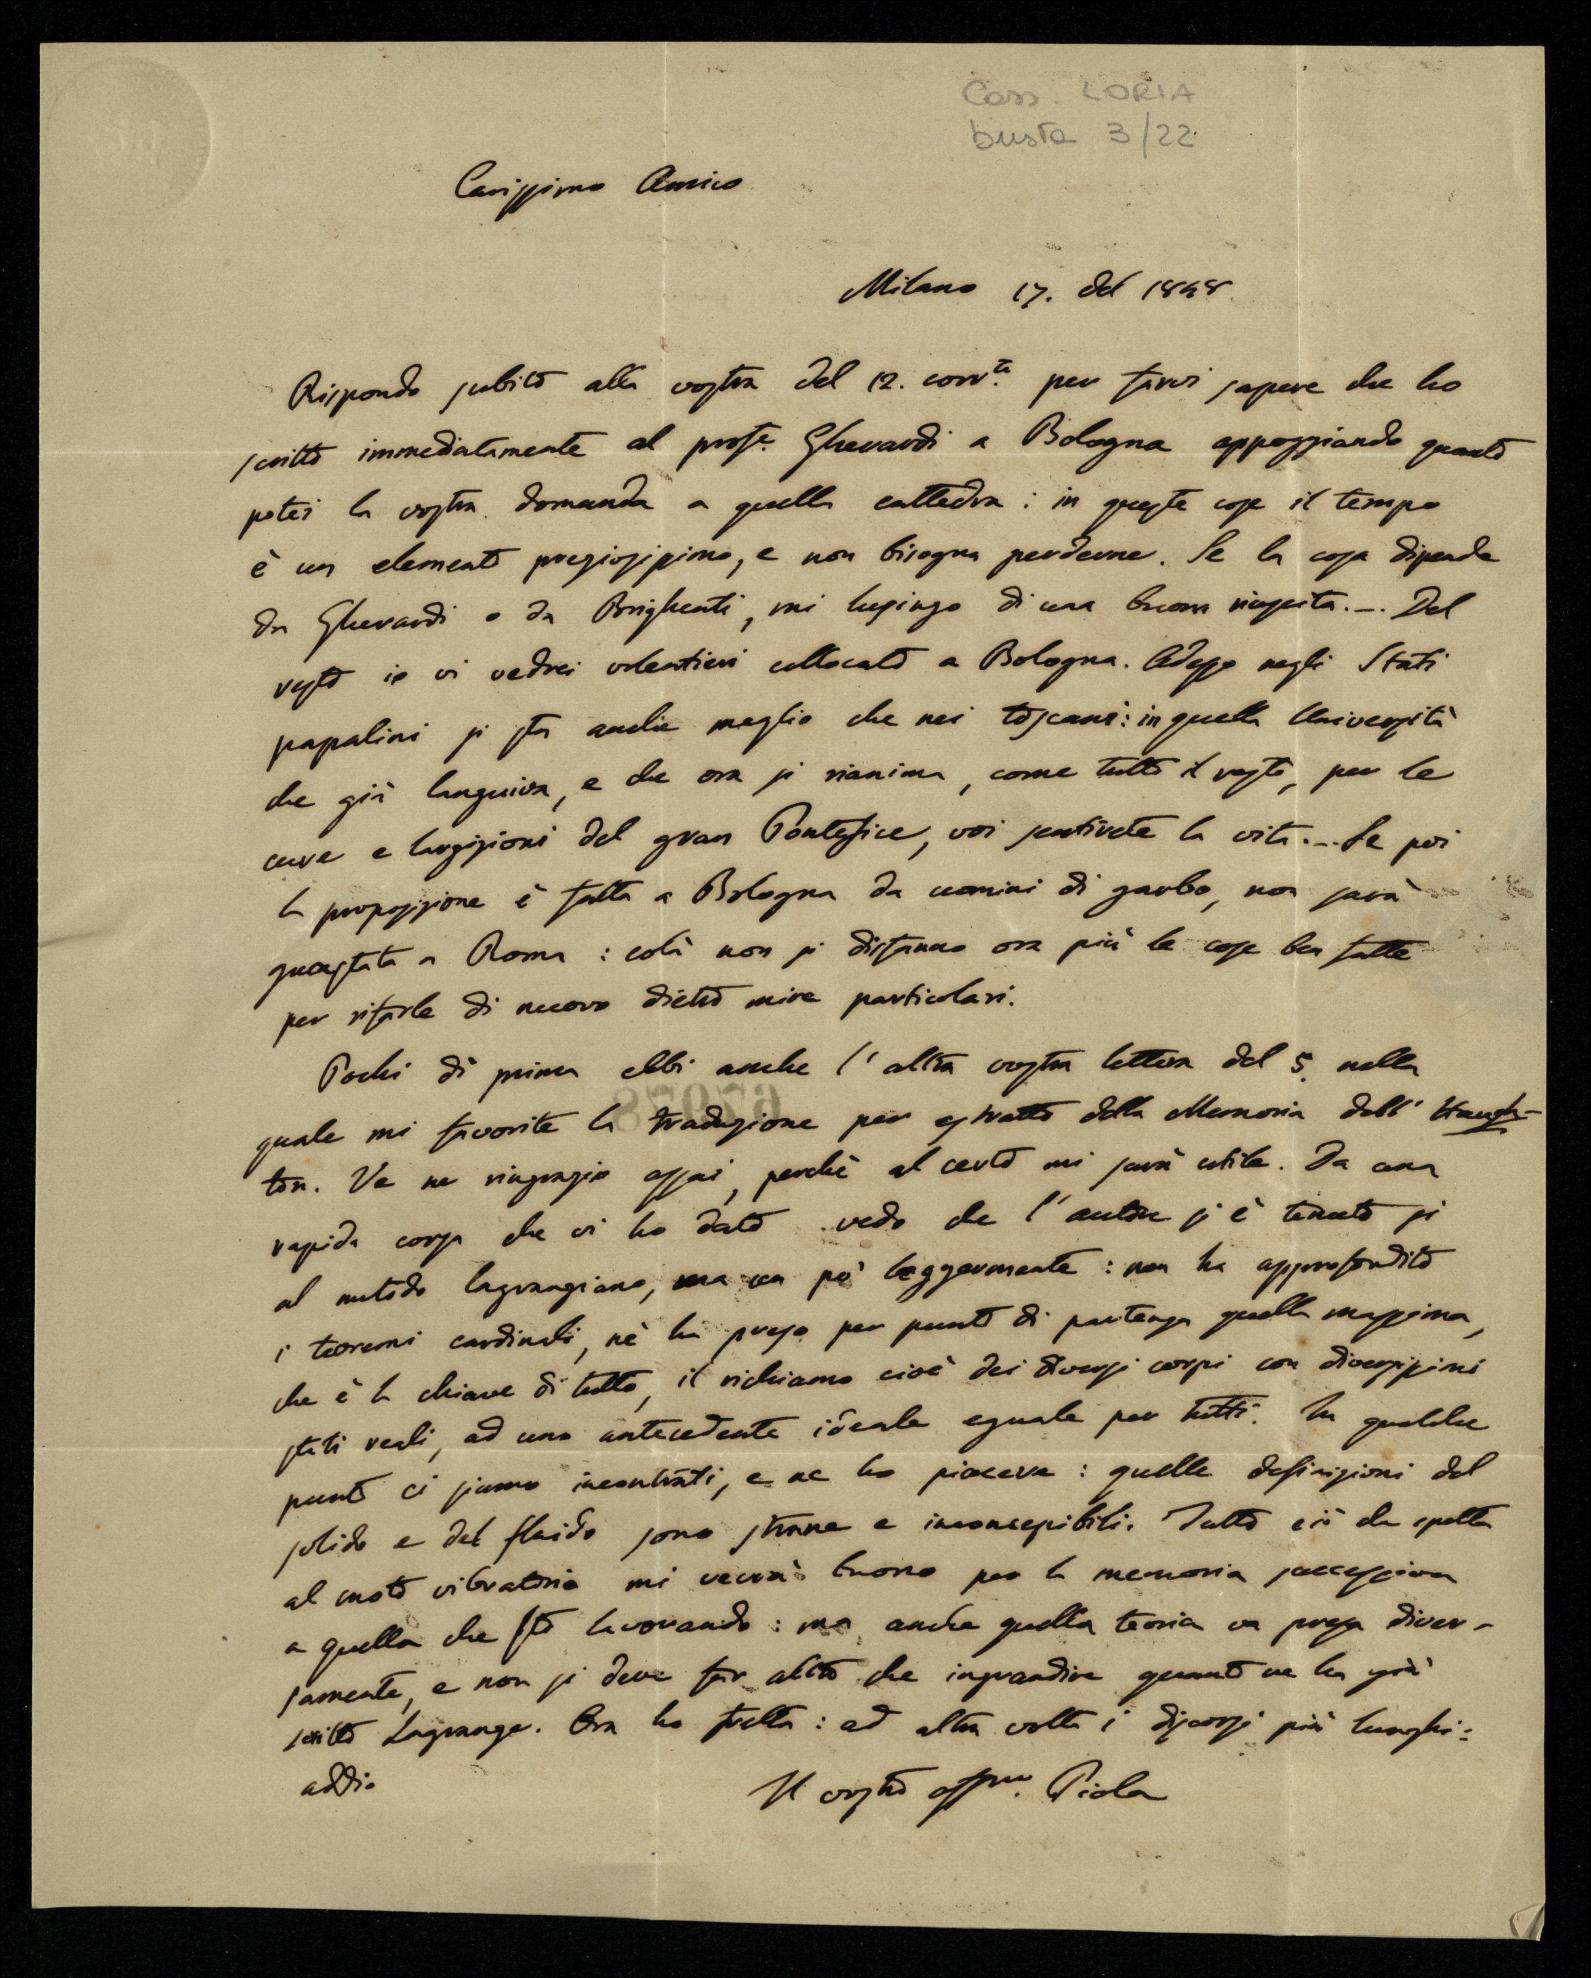 Cass. LORIA
busta 3/22
Carissimo Amico
Milano 17. del 1848.
Rispondo subito alla vostra del 12. corr.te per farvi sapere che ho
scritto immediatamente al profe. Gherardi a Bologna appoggiando quanto
potei la vostra domanda a quella cattedra : in queste cose il tempo
è un elemento preziosissimo, e non bisogna perderne. Se la cosa dipende
da Gherardi o da Brighenti, mi lusingo di una buona riuscita. –. Del
resto io vi vedrei volentieri collocato a Bologna. Adesso negli Stati
papalini si sta anche meglio che nei toscani : in quella Università
che già languiva, e che ora si rianima, come tutto il resto, per le
cure e largizioni del gran Pontefice, voi sentirete la vita. – Se poi
la proposizione è fatta a Bologna da uomini di garbo, non sarà
guastata a Roma : colà non si disfanno ora più le cose ben fatte
per rifarle di nuovo dietro mire particolari.
Pochi dì prima ebbi anche l'altra vostra lettera del 5. nella
67978
quale mi favorite la traduzione per estratto della Memoria dell' Haugh-
ton. Ve ne ringrazio assai, perchè al certo mi sarà utile. Da una
rapida corsa che vi ho dato vedo che l'autore s'è tenuto sì
al metodo lagrangiano, ma un po' leggermente : non ha approfondito
i teoremi cardinali, nè ha preso per punto di partenza quella massima,
che è la chiave di tutto, il richiamo cioè dei diversi corpi con diversissimi
stati reali, ad uno antecedente ideale eguale per tutti. In qualche
punto ci siamo incontrati, e ne ho piacere : quelle definizioni del
solido e del fluido sono strane e inconcepibili. Tutto ciò che spetta
al moto vibratorio mi verrà buono per la memoria successiva
a quella che sto lavorando : ma anche quella teoria va presa diver-
samente, e non si deve far altro che ingrandire quanto ne ha già
scritto Lagrange. Ora ho fretta : ad altra volta i discorsi più lunghi :
addio
Il vostro affmo. Piola